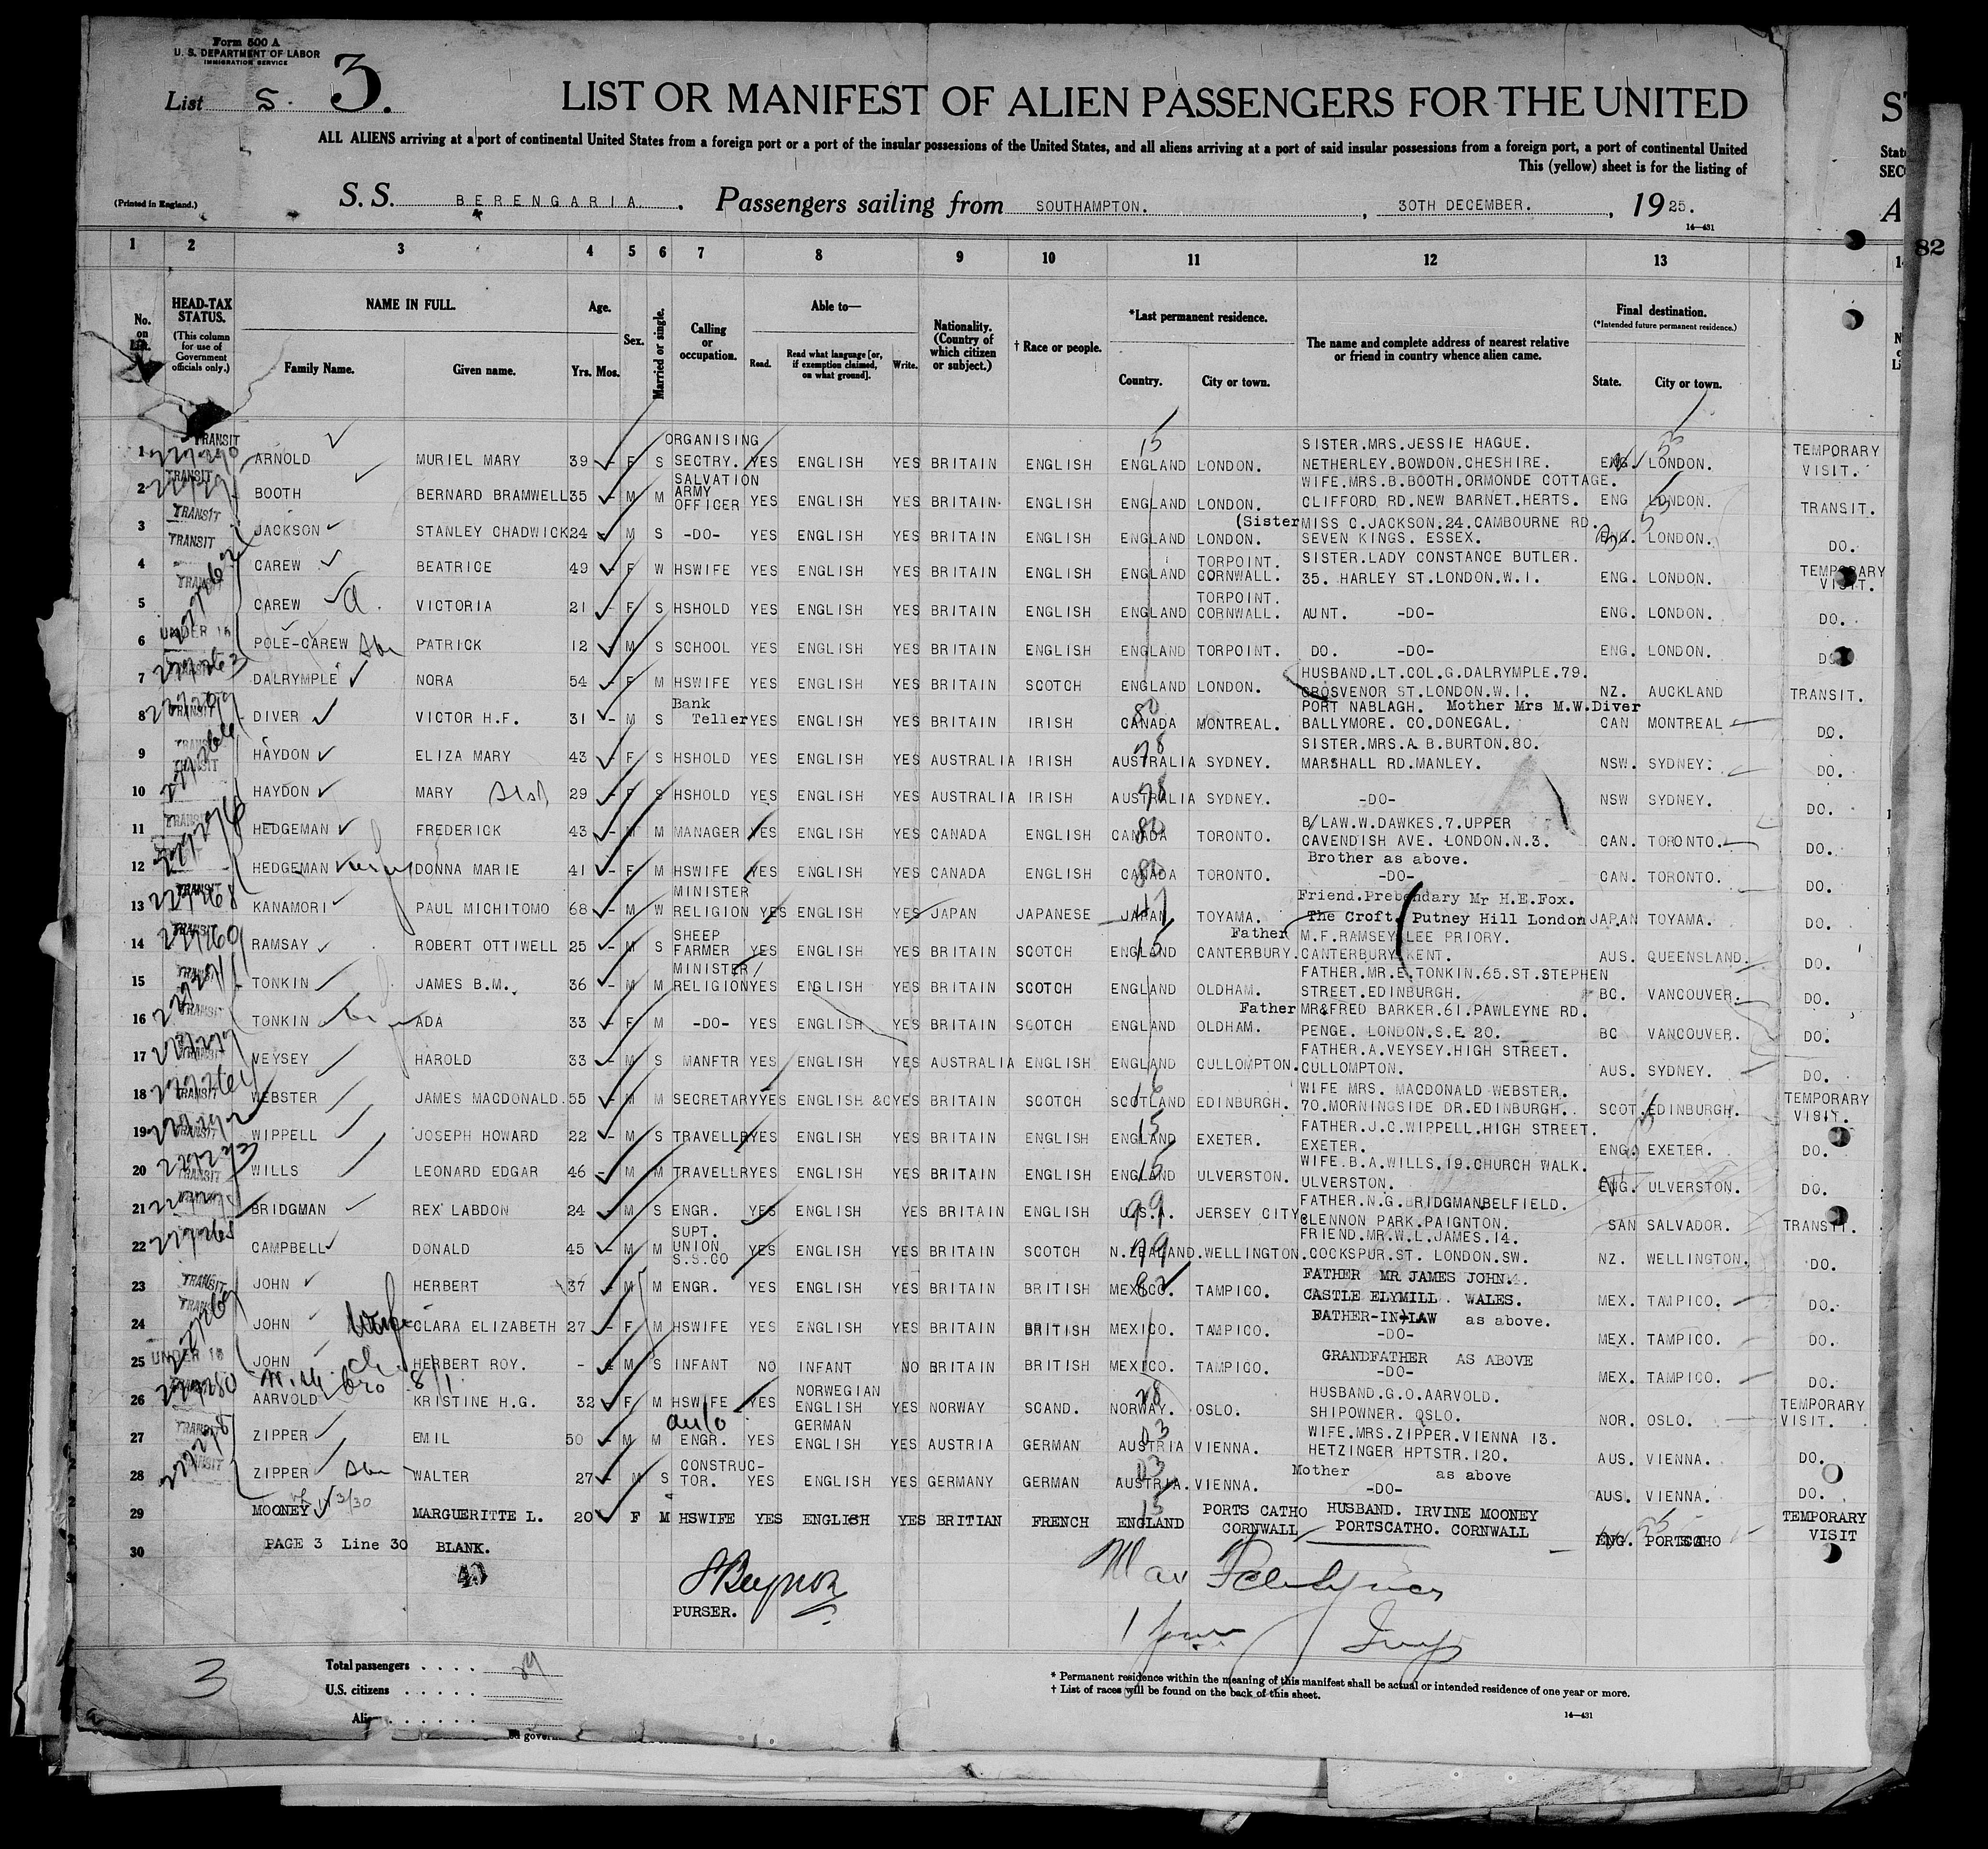 Form 500 A
U. S. DEPARTMENT OF LABOR
IMMIGRATION SERVICE
List S. 3.
LIST OR MANIFEST OF ALIEN PASSENGERS FOR THE UNITED
ALL ALIENS arriving at a port of continental United States from a foreign port or a port of the insular possessions of the United States, and all aliens arriving at a port of said insular possessions from a foreign port, a port of continental United
This (yellow) sheet is for the listing of
(Printed in England.)
S. S. BERENGARIA. Passengers sailing from SOUTHAMPTON. , 30TH DECEMBER. , 1925.
14—431
82
1 2 3 4 5 6 7 8 9 10 11 12 13
No. on List.
HEAD-TAX STATUS. (This column for use of Government officials only.)
NAME IN FULL. Family Name. Given name.
Age. Yrs. Mos.
Sex.
Married or single.
Calling or occupation.
Able to— Read. Read what language [or, if exemption claimed, on what ground]. Write.
Nationality. (Country of which citizen or subject.)
† Race or people.
*Last permanent residence. Country. City or town.
The name and complete address of nearest relative or friend in country whence alien came.
Final destination. (*Intended future permanent residence.) State. City or town.
1 TRANSIT ARNOLD MURIEL MARY 39 - F S ORGANISING SECTRY. YES ENGLISH YES BRITAIN ENGLISH ENGLAND LONDON. SISTER.MRS.JESSIE HAGUE. NETHERLEY.BOWDON.CHESHIRE. ENG. LONDON. TEMPORARY VISIT.
2 TRANSIT BOOTH BERNARD BRAMWELL 35 - M M SALVATION ARMY OFFICER YES ENGLISH YES BRITAIN. ENGLISH ENGLAND LONDON. WIFE.MRS.B.BOOTH.ORMONDE COTTAGE. CLIFFORD RD.NEW BARNET.HERTS. ENG LONDON. TRANSIT.
3 TRANSIT JACKSON STANLEY CHADWICK 24 M S -DO- YES ENGLISH YES BRITAIN ENGLISH ENGLAND LONDON. (Sister MISS C.JACKSON.24.CAMBOURNE RD. SEVEN KINGS. ESSEX. ENG. LONDON. DO.
4 TRANSIT CAREW BEATRICE 49 - F W HSWIFE YES ENGLISH YES BRITAIN ENGLISH ENGLAND TORPOINT. CORNWALL. SISTER.LADY CONSTANCE BUTLER. 35. HARLEY ST.LONDON.W.I. ENG. LONDON. TEMPORARY VISIT.
5 CAREW VICTORIA 21 - F S HSHOLD YES ENGLISH YES BRITAIN ENGLISH ENGLAND TORPOINT. CORNWALL. AUNT. -DO- ENG. LONDON. DO.
6 UNDER 16 POLE-CAREW Son PATRICK 12 M S SCHOOL YES ENGLISH YES BRITAIN ENGLISH ENGLAND TORPOINT. DO. -DO- ENG. LONDON. DO.
7 DALRYMPLE NORA 54 - F M HSWIFE YES ENGLISH YES BRITAIN SCOTCH ENGLAND LONDON. HUSBAND.LT.COL.G.DALRYMPLE.79. GROSVENOR ST.LONDON.W.I. NZ. AUCKLAND TRANSIT.
8 DIVER VICTOR H.F. 31 - M S Bank Teller YES ENGLISH YES BRITAIN IRISH CANADA MONTREAL. PORT NABLAGH. Mother Mrs M.W.Diver BALLYMORE. CO.DONEGAL. CAN MONTREAL DO.
9 HAYDON ELIZA MARY 43 - F S HSHOLD YES ENGLISH YES AUSTRALIA IRISH AUSTRALIA SYDNEY. SISTER.MRS.A B.BURTON.80. MARSHALL RD.MANLEY. NSW. SYDNEY. DO.
10 HAYDON MARY Sist 29 - F S HSHOLD YES ENGLISH YES AUSTRALIA IRISH AUSTRALIA SYDNEY. -DO- NSW SYDNEY. DO.
11 HEDGEMAN FREDERICK 43 - M M MANAGER YES ENGLISH YES CANADA ENGLISH CANADA TORONTO. B/LAW.W.DAWKES.7.UPPER CAVENDISH AVE. LONDON.N.3. CAN. TORONTO. DO.
12 HEDGEMAN DONNA MARIE 41 - F M HSWIFE YES ENGLISH YES CANADA ENGLISH CANADA TORONTO. Brother as above. -DO- CAN. TORONTO. DO.
13 TRANSIT KANAMORI PAUL MICHITOMO 68 - M W MINISTER RELIGION YES ENGLISH YES JAPAN JAPANESE JAPAN TOYAMA. Friend.Prebendary Mr H.E.Fox. The Croft. Putney Hill London JAPAN TOYAMA. DO.
14 TRANSIT RAMSAY ROBERT OTTIWELL 25 - M S SHEEP FARMER YES ENGLISH YES BRITAIN SCOTCH ENGLAND CANTERBURY. Father M.F.RAMSEY LEE PRIORY. CANTERBURY KENT. AUS. QUEENSLAND. DO.
15 TONKIN JAMES B.M. 36 - M M MINISTER/ RELIGION YES ENGLISH YES BRITAIN SCOTCH ENGLAND OLDHAM. FATHER.MR.E.TONKIN.65.ST.STEPHEN STREET.EDINBURGH. BC. VANCOUVER. DO.
16 TRANSIT TONKIN ADA 33 - F M -DO- YES ENGLISH YES BRITAIN SCOTCH ENGLAND OLDHAM. Father MR&FRED BARKER.61.PAWLEYNE RD. PENGE. LONDON.S.E 20. BC VANCOUVER. DO.
17 VEYSEY HAROLD 33 - M S MANFTR YES ENGLISH YES AUSTRALIA ENGLISH ENGLAND CULLOMPTON. FATHER.A.VEYSEY.HIGH STREET. CULLOMPTON. AUS. SYDNEY. DO.
18 TRANSIT WEBSTER JAMES MACDONALD. 55 - M M SECRETARY YES ENGLISH &C YES BRITAIN SCOTCH SCOTLAND EDINBURGH. WIFE MRS. MACDONALD WEBSTER. 70.MORNINGSIDE DR.EDINBURGH. SCOT. EDINBURGH. TEMPORARY VISIT.
19 TRANSIT WIPPELL JOSEPH HOWARD 22 - M S TRAVELLR YES ENGLISH YES BRITAIN ENGLISH ENGLAND EXETER. FATHER.J.C.WIPPELL.HIGH STREET. EXETER. ENG. EXETER. DO.
20 TRANSIT WILLS LEONARD EDGAR 46 - M M TRAVELLR YES ENGLISH YES BRITAIN ENGLISH ENGLAND ULVERSTON. WIFE.B.A.WILLS.19.CHURCH WALK. ULVERSTON. ENG. ULVERSTON. DO.
21 BRIDGMAN REX LABDON 24 M S ENGR. YES ENGLISH YES BRITAIN ENGLISH U.S.A. JERSEY CITY. FATHER.N.G.BRIDGMAN BELFIELD. GLENNON PARK.PAIGNTON. SAN SALVADOR. TRANSIT.
22 CAMPBELL DONALD 45 - M M SUPT. UNION S.S.CO YES ENGLISH YES BRITAIN SCOTCH N.ZEALAND. WELLINGTON. FRIEND.MR.W.L.JAMES.14. COCKSPUR.ST. LONDON.SW. NZ. WELLINGTON. DO.
23 TRANSIT JOHN HERBERT 37 - M M ENGR. YES ENGLISH YES BRITAIN BRITISH MEXICO. TAMPICO. FATHER MR JAMES JOHN. CASTLE ELYMILL. WALES. MEX. TAMPICO. DO.
24 JOHN Wife CLARA ELIZABETH 27 - F M HSWIFE YES ENGLISH YES BRITAIN BRITISH MEXICO. TAMPICO. FATHER-IN-LAW as above. -DO- MEX. TAMPICO. DO.
25 UNDER 16 JOHN Ch. HERBERT ROY. - 4 M S INFANT NO INFANT NO BRITAIN BRITISH MEXICO. TAMPICO. GRANDFATHER AS ABOVE -DO- MEX. TAMPICO. DO.
26 AARVOLD KRISTINE H.G. 32 F M HSWIFE YES NORWEGIAN ENGLISH YES NORWAY SCAND. NORWAY. OSLO. HUSBAND.G.O.AARVOLD. SHIPOWNER. OSLO. NOR. OSLO. TEMPORARY VISIT.
27 TRANSIT ZIPPER EMIL 50 - M M auto ENGR. YES GERMAN ENGLISH YES AUSTRIA GERMAN AUSTRIA VIENNA. WIFE.MRS.ZIPPER.VIENNA 13. HETZINGER HPTSTR.120. AUS. VIENNA. DO.
28 ZIPPER Son WALTER 27 - M S CONSTRUC- TOR. YES ENGLISH YES GERMANY GERMAN AUSTRIA. VIENNA. Mother as above -DO- AUS. VIENNA. DO.
29 MOONEY MARGUERITTE L. 20 F M HSWIFE YES ENGLISH YES BRITIAN FRENCH ENGLAND PORTS CATHO CORNWALL HUSBAND. IRVINE MOONEY PORTSCATHO. CORNWALL ENG. TEMPORARY VISIT
30 PAGE 3 Line 30 BLANK.
PURSER.
3
Total passengers . . . .
U.S. citizens . . . . .
* Permanent residence within the meaning of this manifest shall be actual or intended residence of one year or more.
† List of races will be found on the back of this sheet.
14—431